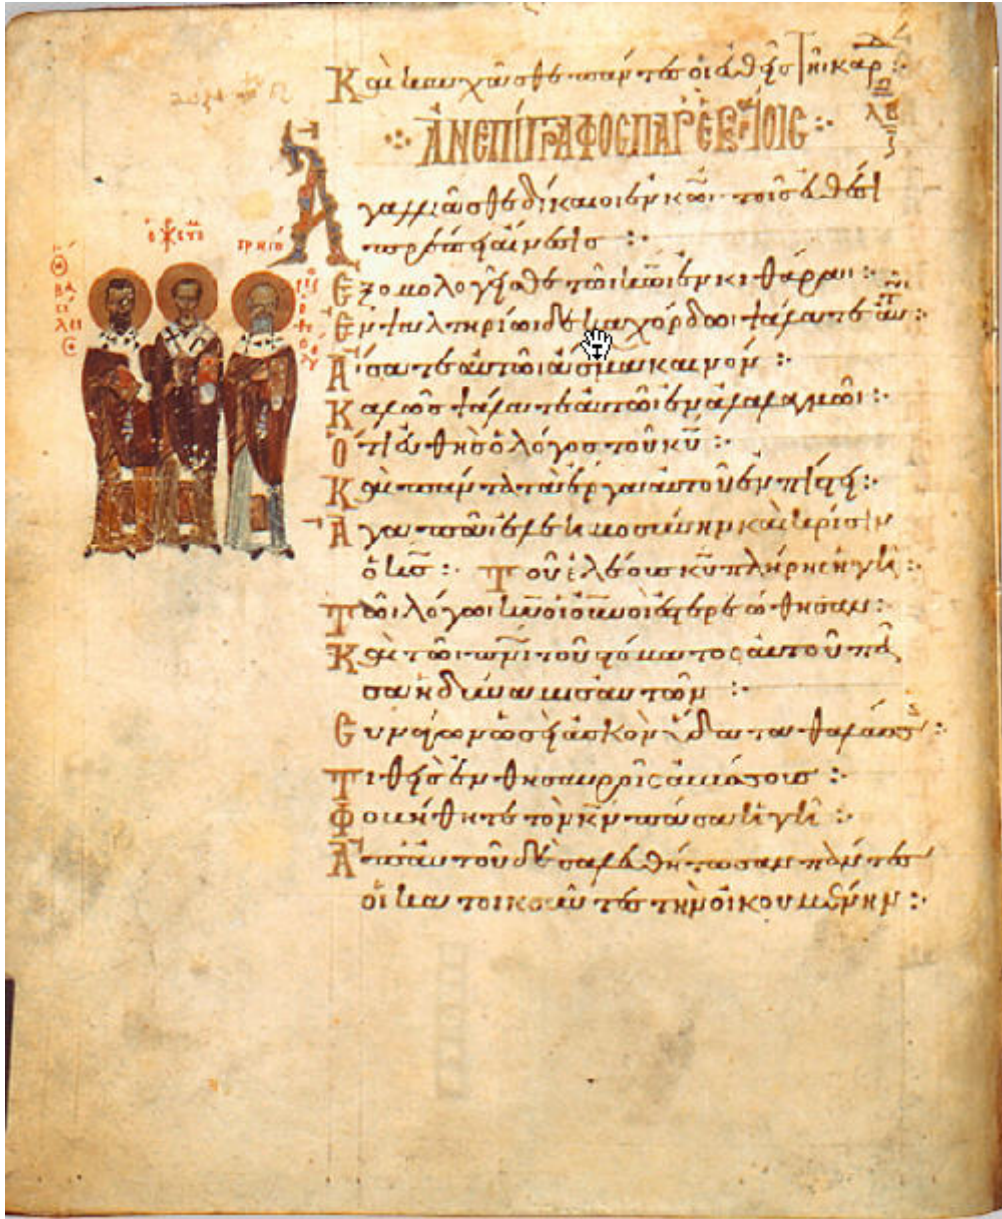 Καὶ καυχᾶσθε πάντες οἱ εὐθεῖς τῆι καρδ
ΛΒ
ἈΝΕΠΊΓΡΑΦΟΣ ΠΑΡ' ἙΒΡΑΊΟΙΣ
Ἀγαλλιᾶσθε δίκαιοι ἐν κῶι τοῖς εὐθέσι
πρέπει αἴνεσις :
Ἐξομολογεῖσθε τῶι κῶι ἐν κιθάραι :
Ἐν ψαλτηρίωι δεκαχόρδωι ψάλατε αὐ
Ἄισατε αὐτῶι ἆσμα καινόν :
Καλῶς ψάλατε αὐτῶι ἐν ἀλαλαγμῶι :
Ὅτι εὐθὴς ὁ λόγος τοῦ κῦ :
Καὶ πάντα τὰ ἔργα αὐτοῦ ἐν πίστει :
Ἀγαπᾶι ἐλεημοσύνην καὶ κρίσιν
ὁ κς : Τοῦ ἐλέους κῦ πλήρης ἡ γῆ :
Τῶι λόγωι κῦ οἱ οὐνοὶ ἐστερεώθησαν :
Καὶ τῶι πνι τοῦ στόματος αὐτοῦ πᾶ
σα ἡ δύναμις αὐτῶν :
Συνάγων ὡσεὶ ἀσκὸν ὕδατα θαλάσσ :
Τιθεὶς ἐν θησαυροῖς ἀβύσσους :
Φοβηθήτω τὸν κν πᾶσα ἡ γῆ :
Ἀπ' αὐτοῦ δὲ σαλευθήτωσαν πάντες
οἱ κατοικοῦντες τὴν οἰκουμένην :